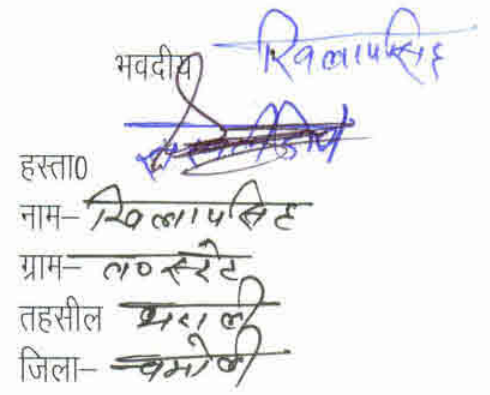 भवदीय खिलापसिंह
हस्ता0
नाम– खिलापसिंह
ग्राम–
तहसील थराली
जिला– चमोली